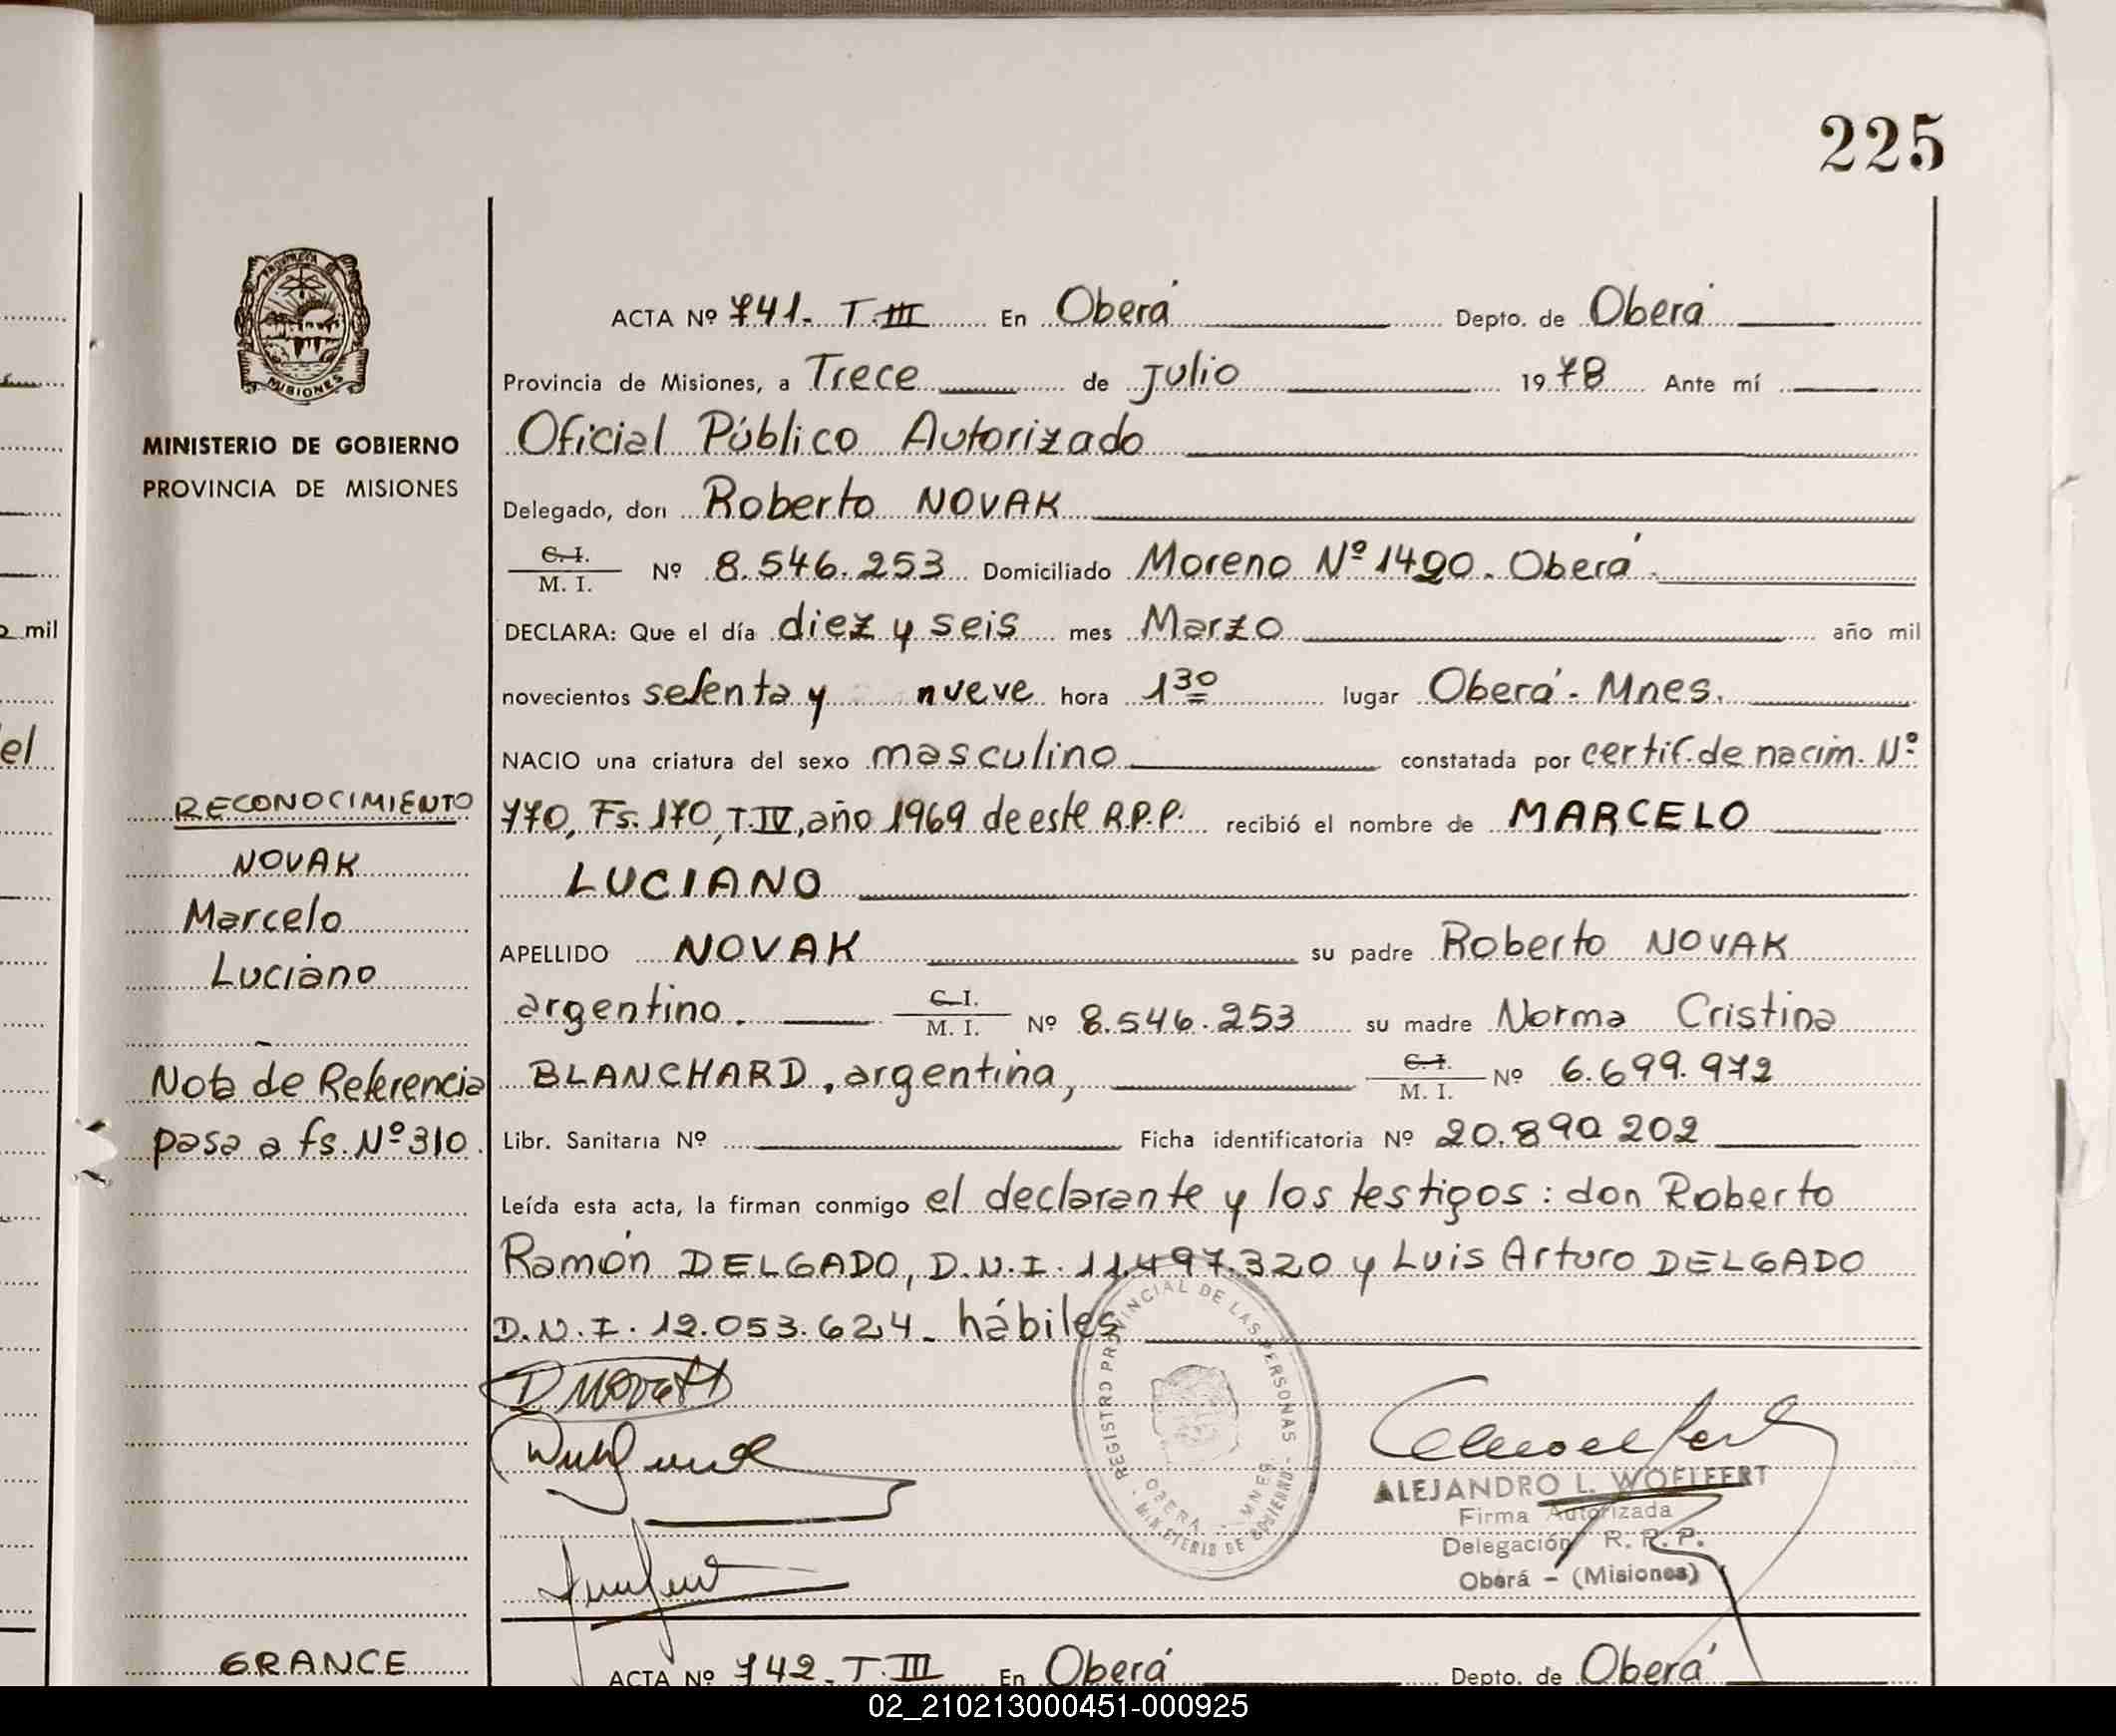 225
PROVINCIA DE
MISIONES
MINISTERIO DE GOBIERNO
PROVINCIA DE MISIONES
ACTA Nº 741. T.III En Oberá Depto. de Oberá
Provincia de Misiones, a Trece de Julio 1978 Ante mí
Oficial Público Autorizado
Delegado, don Roberto NOVAK
C. I.
M. I. Nº 8.546.253 Domiciliado Moreno Nº 1490. Oberá.
DECLARA: Que el día diez y seis mes Marzo año mil
novecientos sesenta y nueve hora 1 30 lugar Oberá - Mnes.
NACIO una criatura del sexo masculino constatada por certif. de nacim. Nº
770, Fs. 170, T.IV, año 1969 de este R.P.P. recibió el nombre de MARCELO
LUCIANO
APELLIDO NOVAK su padre Roberto NOVAK
argentino. C. I. M. I. Nº 8.546.253 su madre Norma Cristina
BLANCHARD, argentina, C. I. M. I. Nº 6.699.972
Libr. Sanitaria Nº Ficha identificatoria Nº 20.890.202
Leída esta acta, la firman conmigo el declarante y los testigos: don Roberto
Ramón DELGADO, D.N.I. 11.497.320 y Luis Arturo DELGADO
D.N.I. 12.053.624 - hábiles
RECONOCIMIENTO
NOVAK
Marcelo
Luciano
Nota de Referencia
pasa a fs. Nº 310.
REGISTRO PROVINCIAL DE LAS PERSONAS
OBERA - MNES
MINISTERIO DE GOBIERNO
ALEJANDRO L. WOELFERT
Firma Autorizada
Delegación R. R. P.
Oberá - (Misiones)
GRANCE
ACTA Nº 742. T.III En Oberá Depto. de Oberá
mil
el
02_210213000451-000925